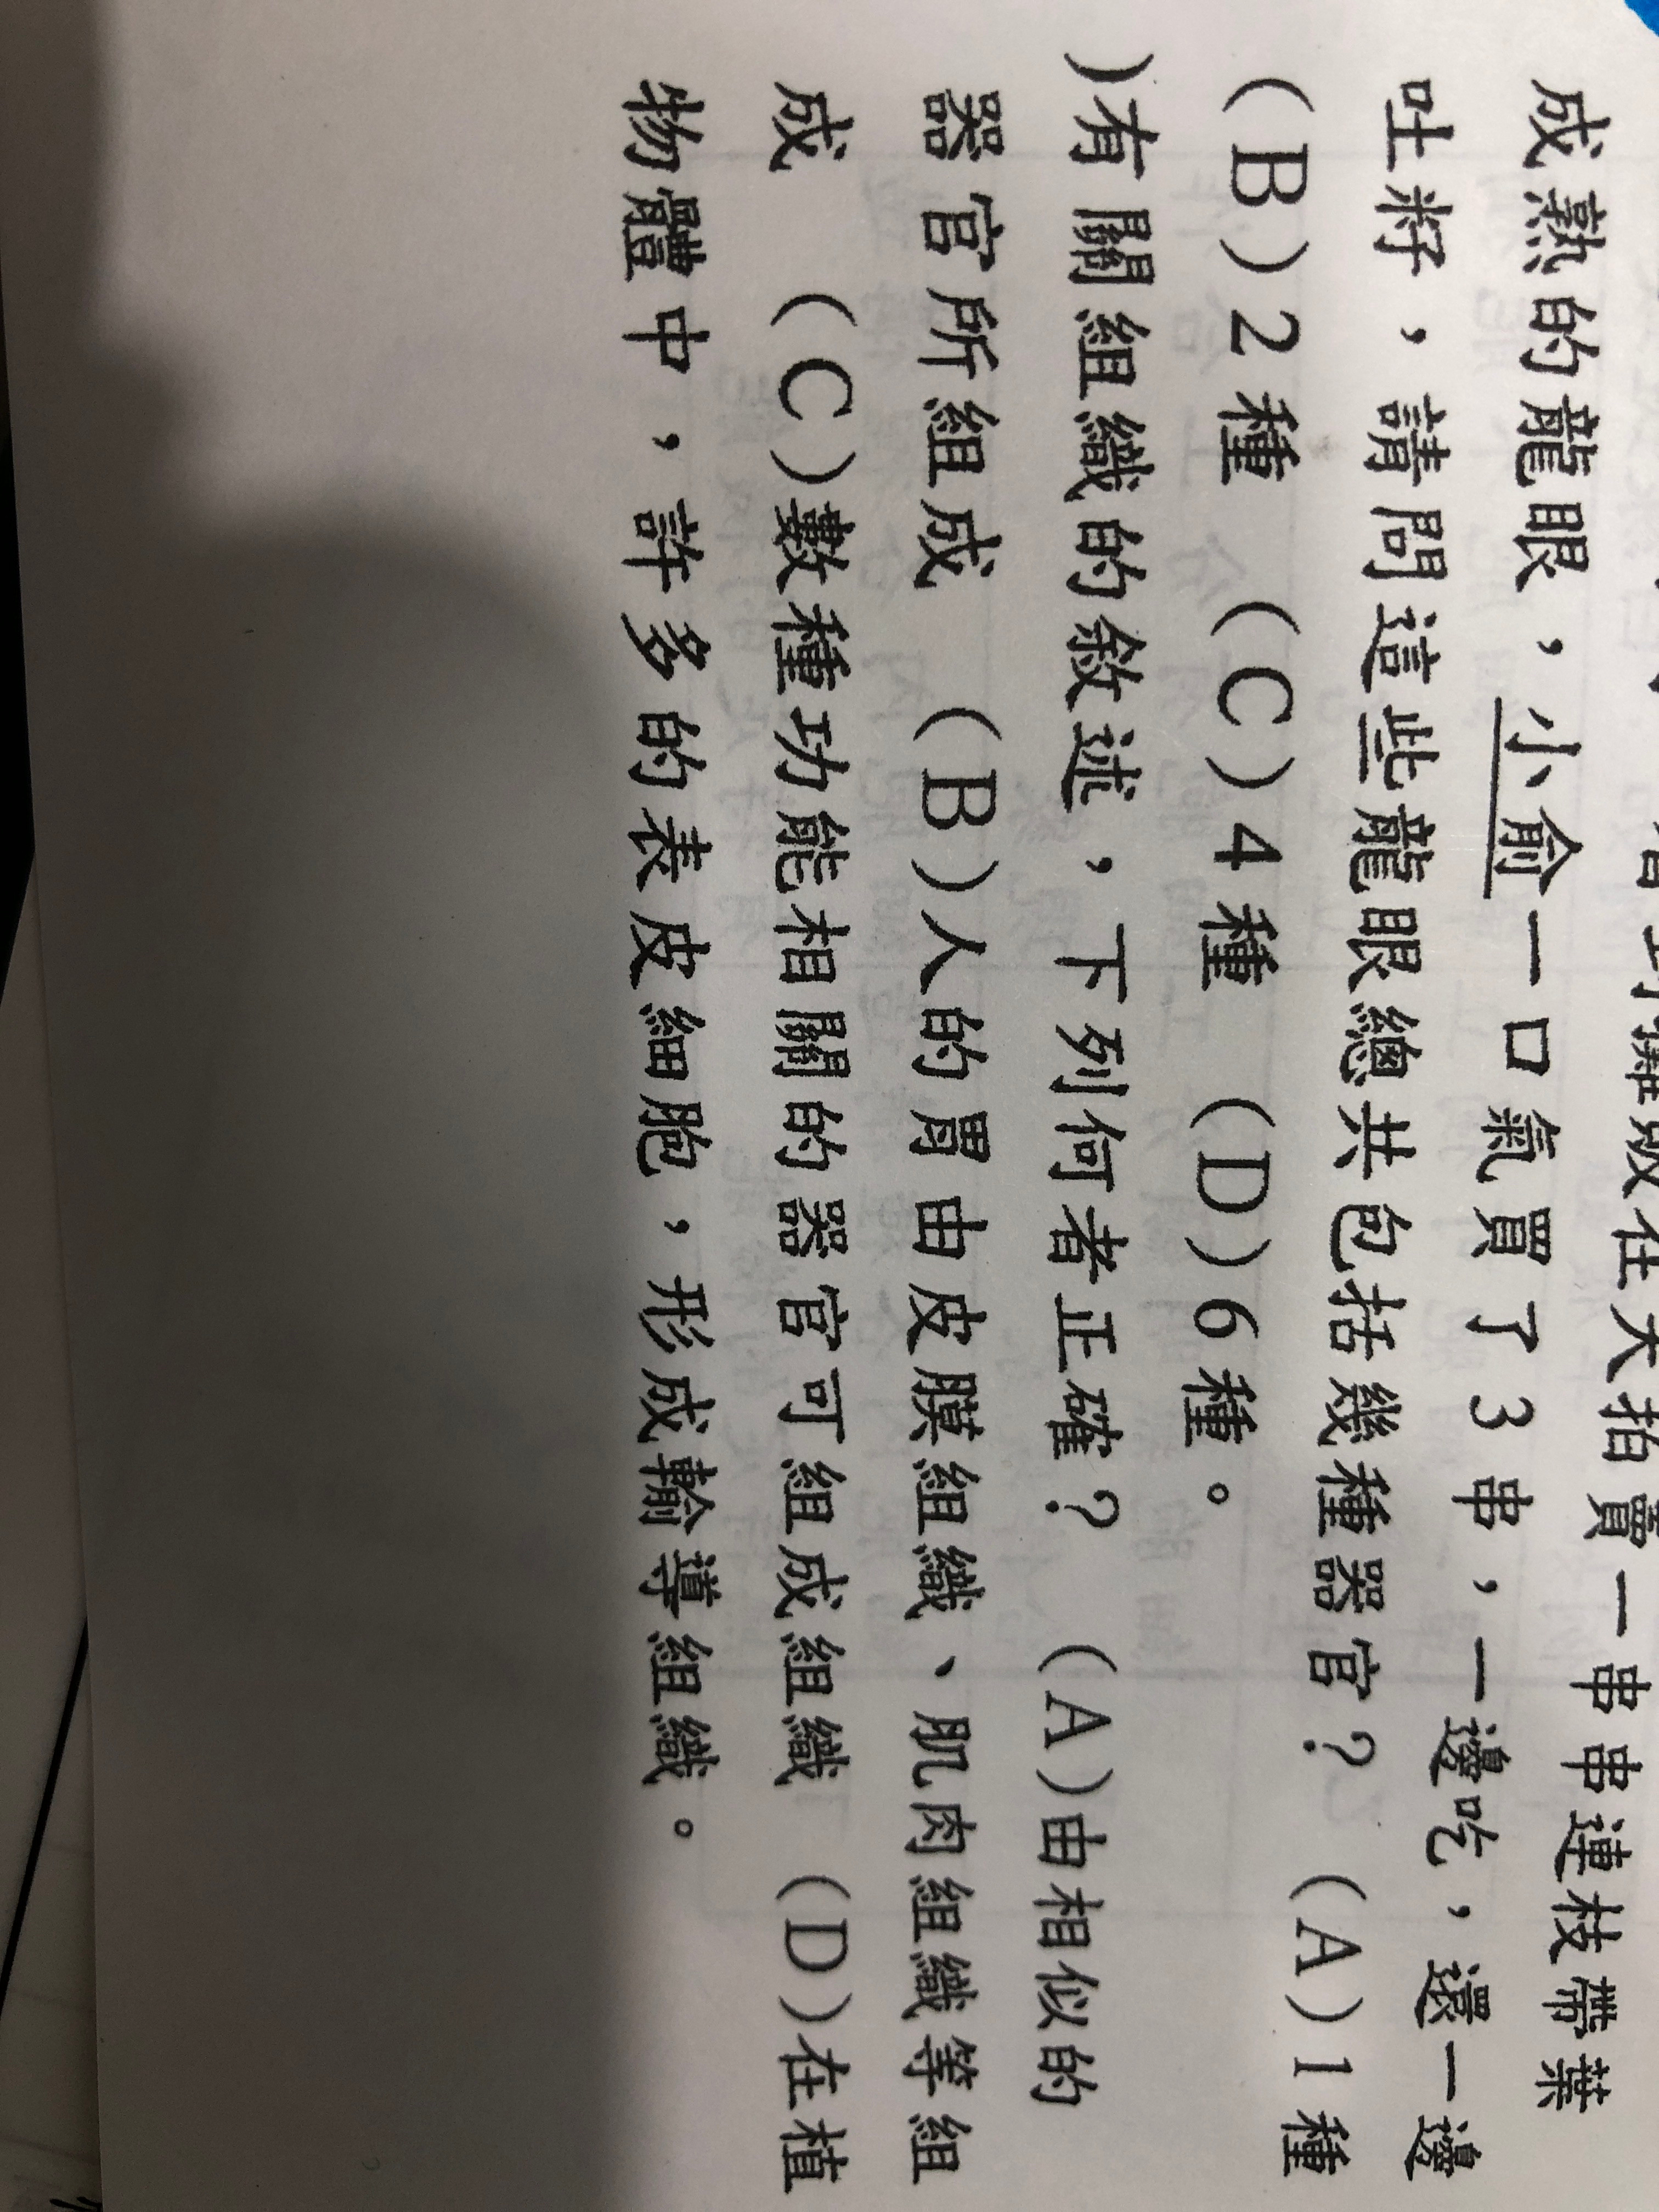 攤販在大拍賣一串串連枝帶葉
成熟的龍眼，小俞一口氣買了3串，一邊吃，還一邊
吐籽，請問這些龍眼總共包括幾種器官？ (A)1種
(B)2種 (C)4種 (D)6種。
)有關組織的敘述，下列何者正確？ (A)由相似的
器官所組成 (B)人的胃由皮膜組織、肌肉組織等組
成 (C)數種功能相關的器官可組成組織 (D)在植
物體中，許多的表皮細胞，形成輸導組織。